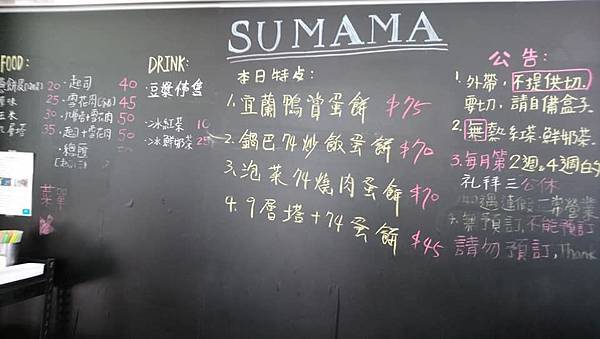 SUMAMA
FOOD:
20
30
35
起司 40
雪花肉 45
50
起司+雪花肉 50
總匯
菜單
DRINK:
豆漿停售
冰紅茶 10
冰鮮奶茶 25
本日特点:
1. 宜蘭鴨賞蛋餅 $75
2. 鍋巴74炒飯蛋餅 $70
3. 泡菜74燒肉蛋餅 $70
4. 9層塔+74蛋餅 $45
公告:
1. 外帶,不提供切.
要切,請自備盒子.
2. 無熱紅茶.鮮奶茶.
3. 每月第2週&4週的
礼拜三公休
遇連假一常營業
無預訂,不能預訂
請勿預訂, Thank